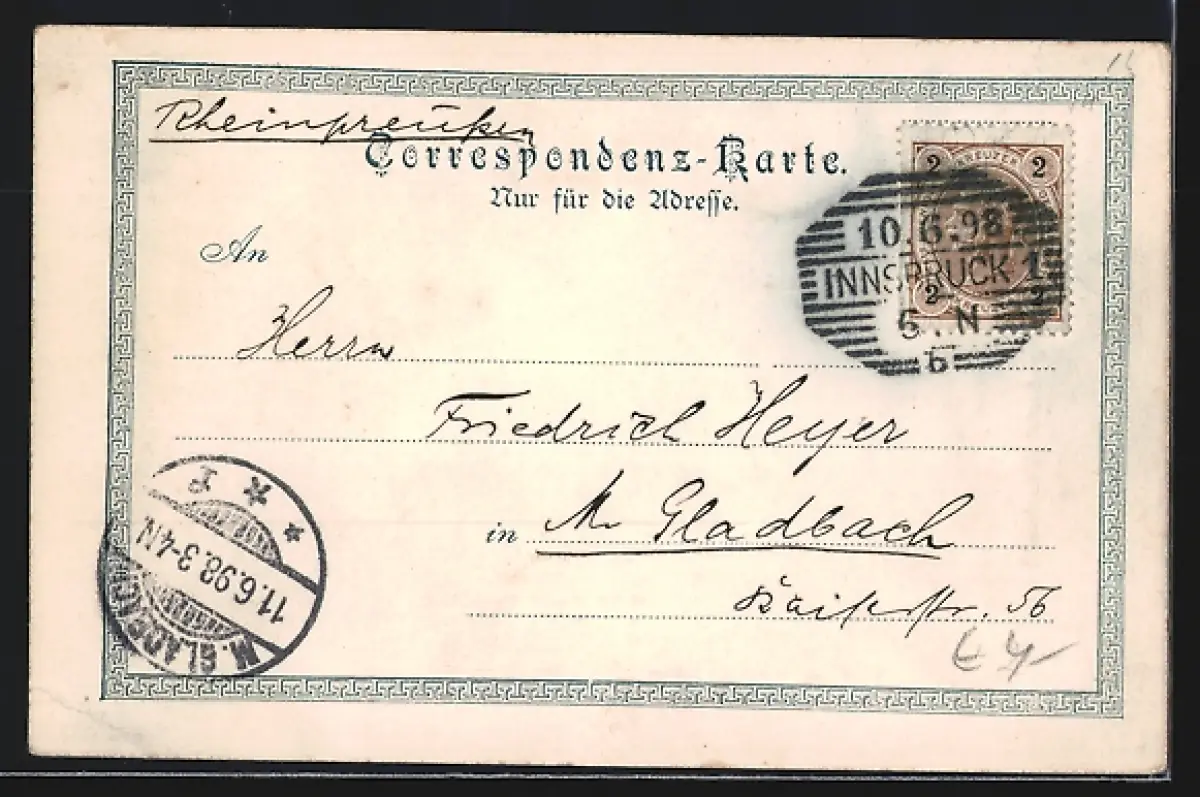 Rheinpreußen
Correspondenz-Karte.
Nur für die Adresse.
2 KREUZER 2
10.6.98
INNSBRUCK 1
6.N
b
2 2
An
Herrn
Friedrich Heyer
in M Gladbach
Kaiserstr. 56
M. GLADBACH
11.6.98.3-4N